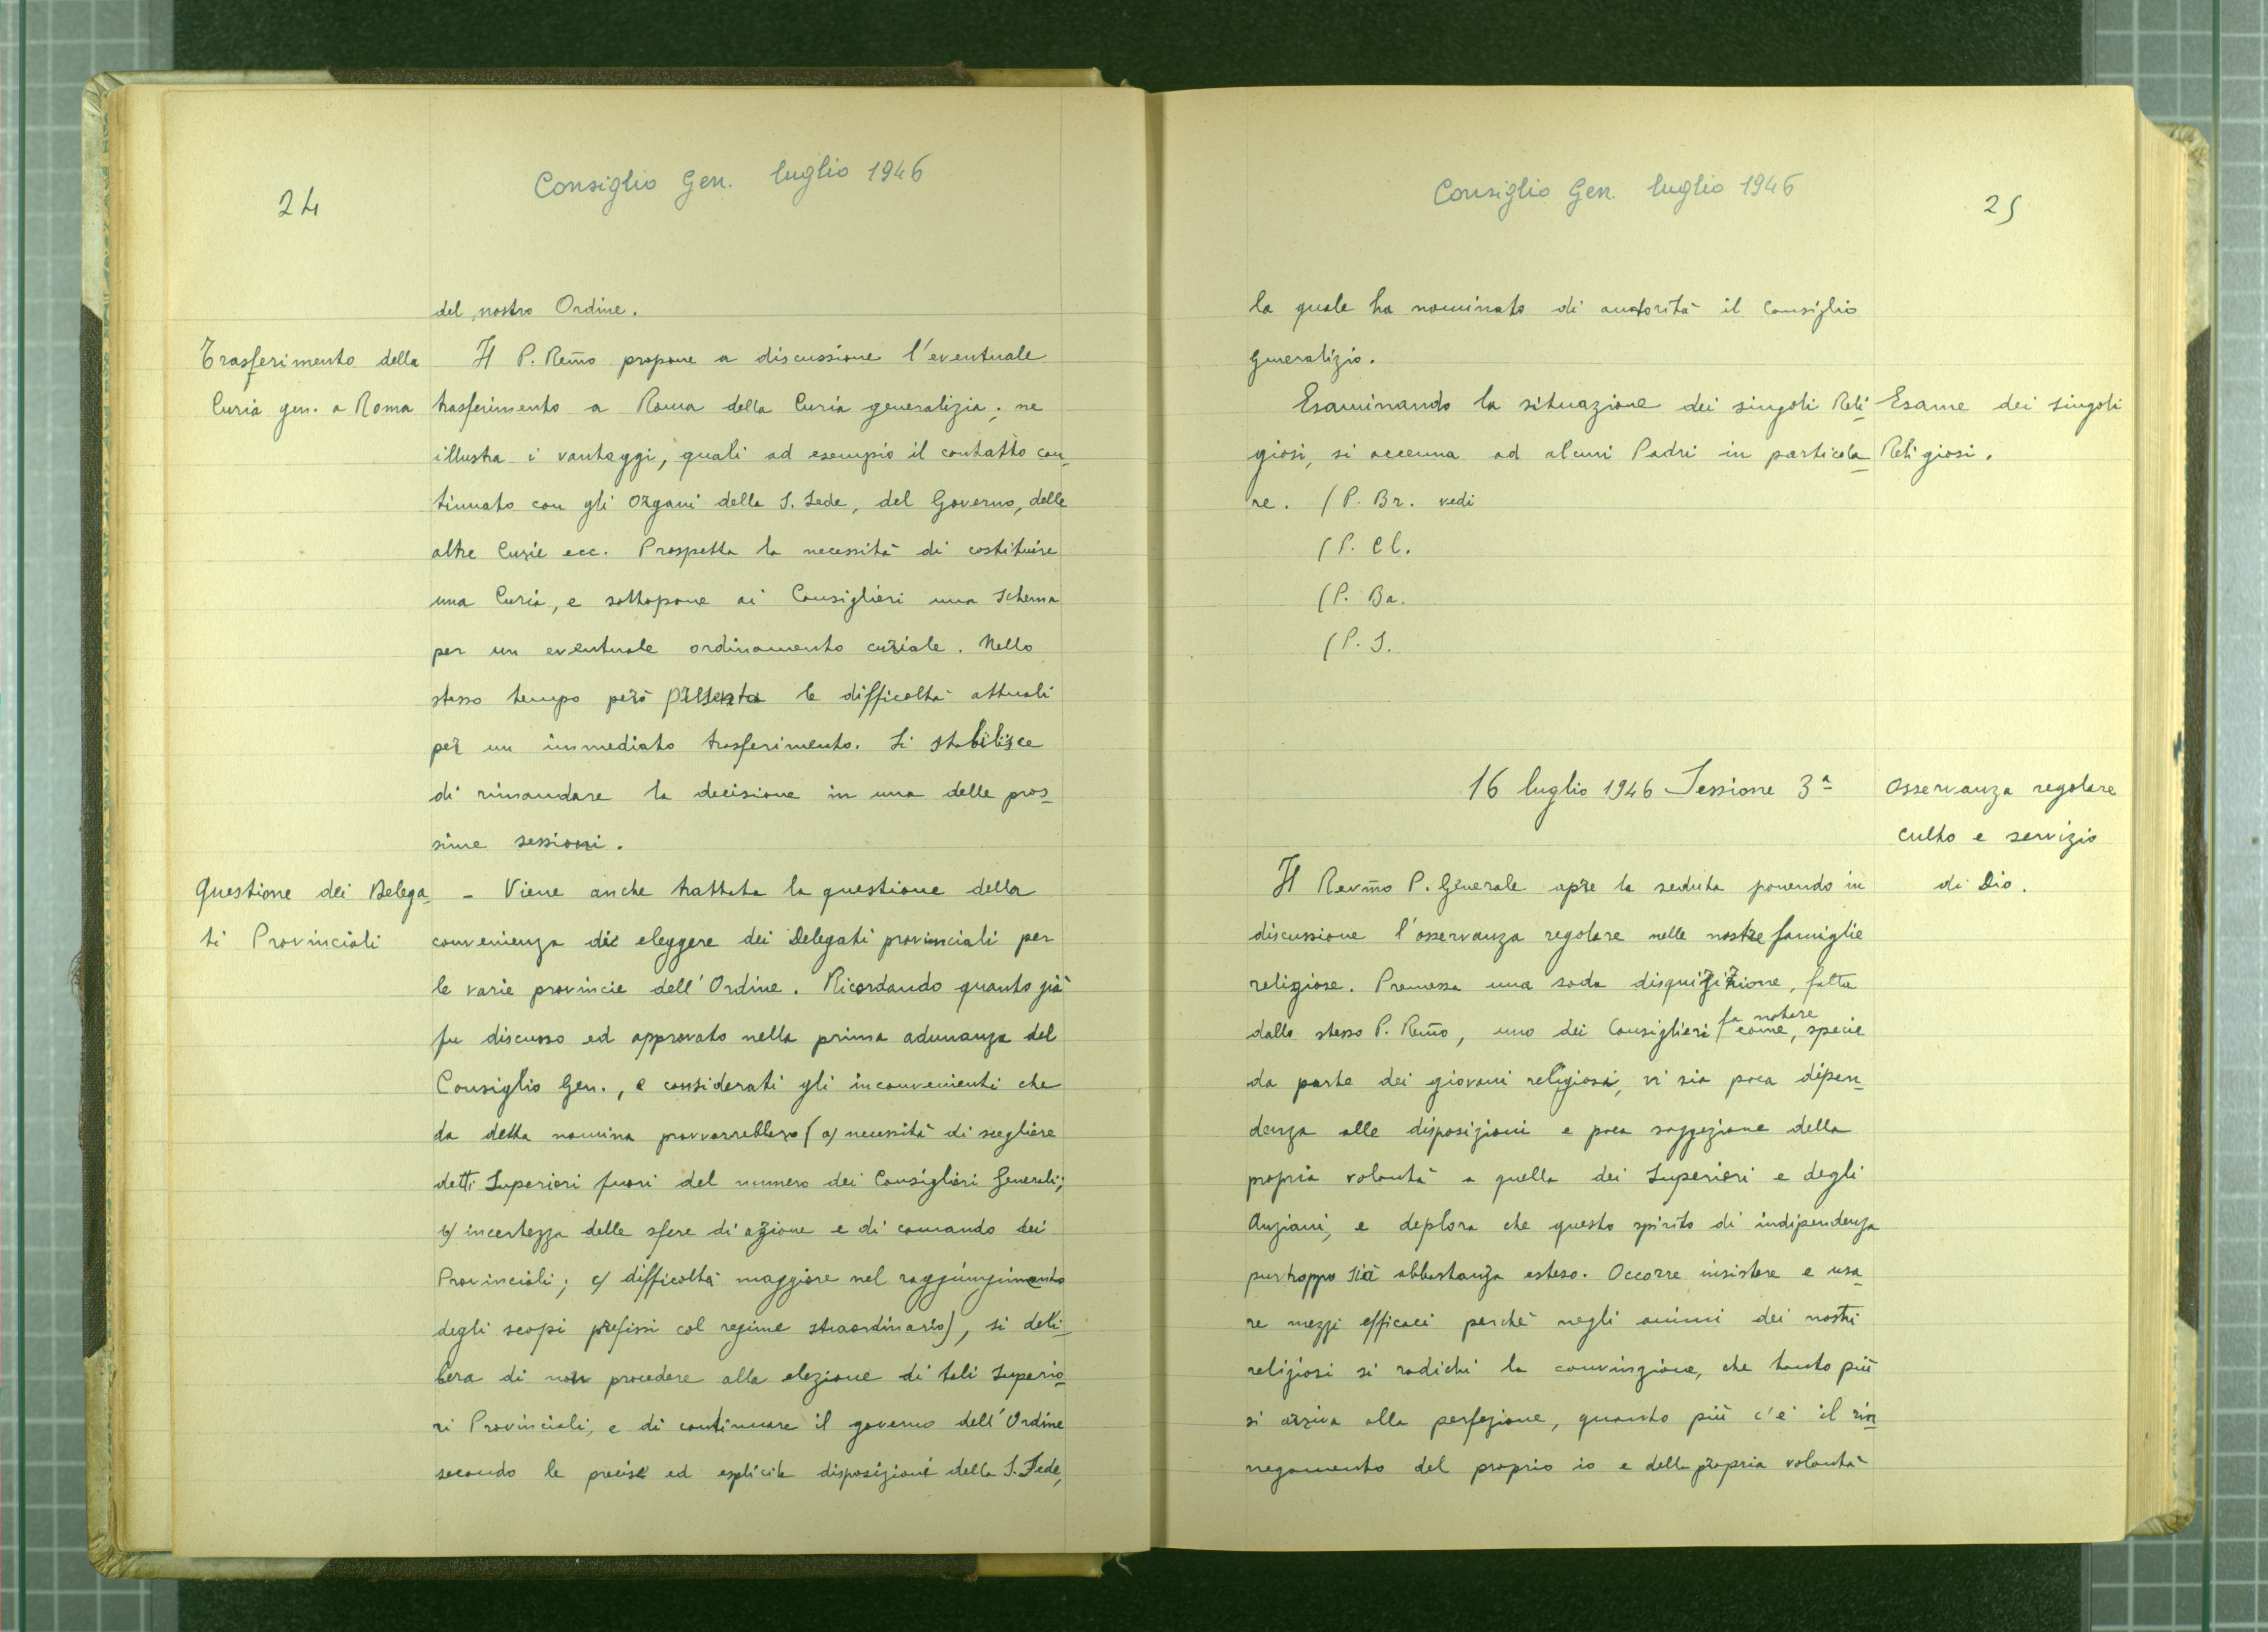 24
Consiglio Gen. luglio 1946
del nostro Ordine.
Trasferimento della
Curia gen. a Roma
Il P. Rem̃o propone a discussione l'eventuale
trasferimento a Roma della Curia generalizia; ne
illustra i vantaggi, quali ad esempio il contatto con-
tinuato con gli Organi della S. Sede, del Governo, delle
altre Curie ecc. Prospetta la necessità di costituire
una Curia, e sottopone ai Consiglieri uno schema
per un eventuale ordinamento curiale. Nello
stesso tempo però presenta le difficoltà attuali
per un immediato trasferimento. Si stabilisce
di rimandare la decisione in una delle pros-
sime sessioni.
Questione dei Delega-
ti Provinciali
- Viene anche trattata la questione della
convenienza di eleggere dei Delegati provinciali per
le varie provincie dell'Ordine. Ricordando quanto già
fu discusso ed approvato nella prima adunanza del
Consiglio Gen., e considerati gli inconvenienti che
da detta nomina provverrebbero (a) necessità di scegliere
detti Superiori fuori del numero dei Consiglieri Generali;
b) incertezza delle sfere di azione e di comando dei
Provinciali; c) difficoltà maggiore nel raggiungimento
degli scopi prefissi col regime straordinario), si deli-
bera di non procedere alla elezione di tali Superio-
ri Provinciali, e di continuare il governo dell'Ordine
secondo le precise ed esplicite disposizioni della S. Sede,
Consiglio Gen. luglio 1946
25
la quale ha nominato di autorità il Consiglio
generalizio.
Esaminando la situazione dei singoli Reli-
giosi, si accenna ad alcuni Padri in particola-
re. (P. Br. vedi
(P. Cl.
(P. Ba.
(P. S.
Esame dei singoli
Religiosi.
16 luglio 1946 Sessione 3ª
Osservanza regolare
culto e servizio
di Dio.
Il Revm̃o P. Generale apre la seduta ponendo in
discussione l'osservanza regolare nelle nostre famiglie
religiose. Premessa una soda disquizizione, fatta
dallo stesso P. Rem̃o, uno dei Consiglieri fa notare come, specie
da parte dei giovani religiosi, vi sia poca dipen-
denza alle disposizioni e poca soggezione della
propria volontà a quella dei Superiori e degli
Anziani, e deplora che questo spirito di indipendenza
purtroppo sia abbastanza esteso. Occorre insistere e usa-
re mezzi efficaci perchè negli animi dei nostri
religiosi si radichi la convinzione, che tanto più
si arriva alla perfezione, quanto più c'è il rin-
negamento del proprio io e della propria volontà